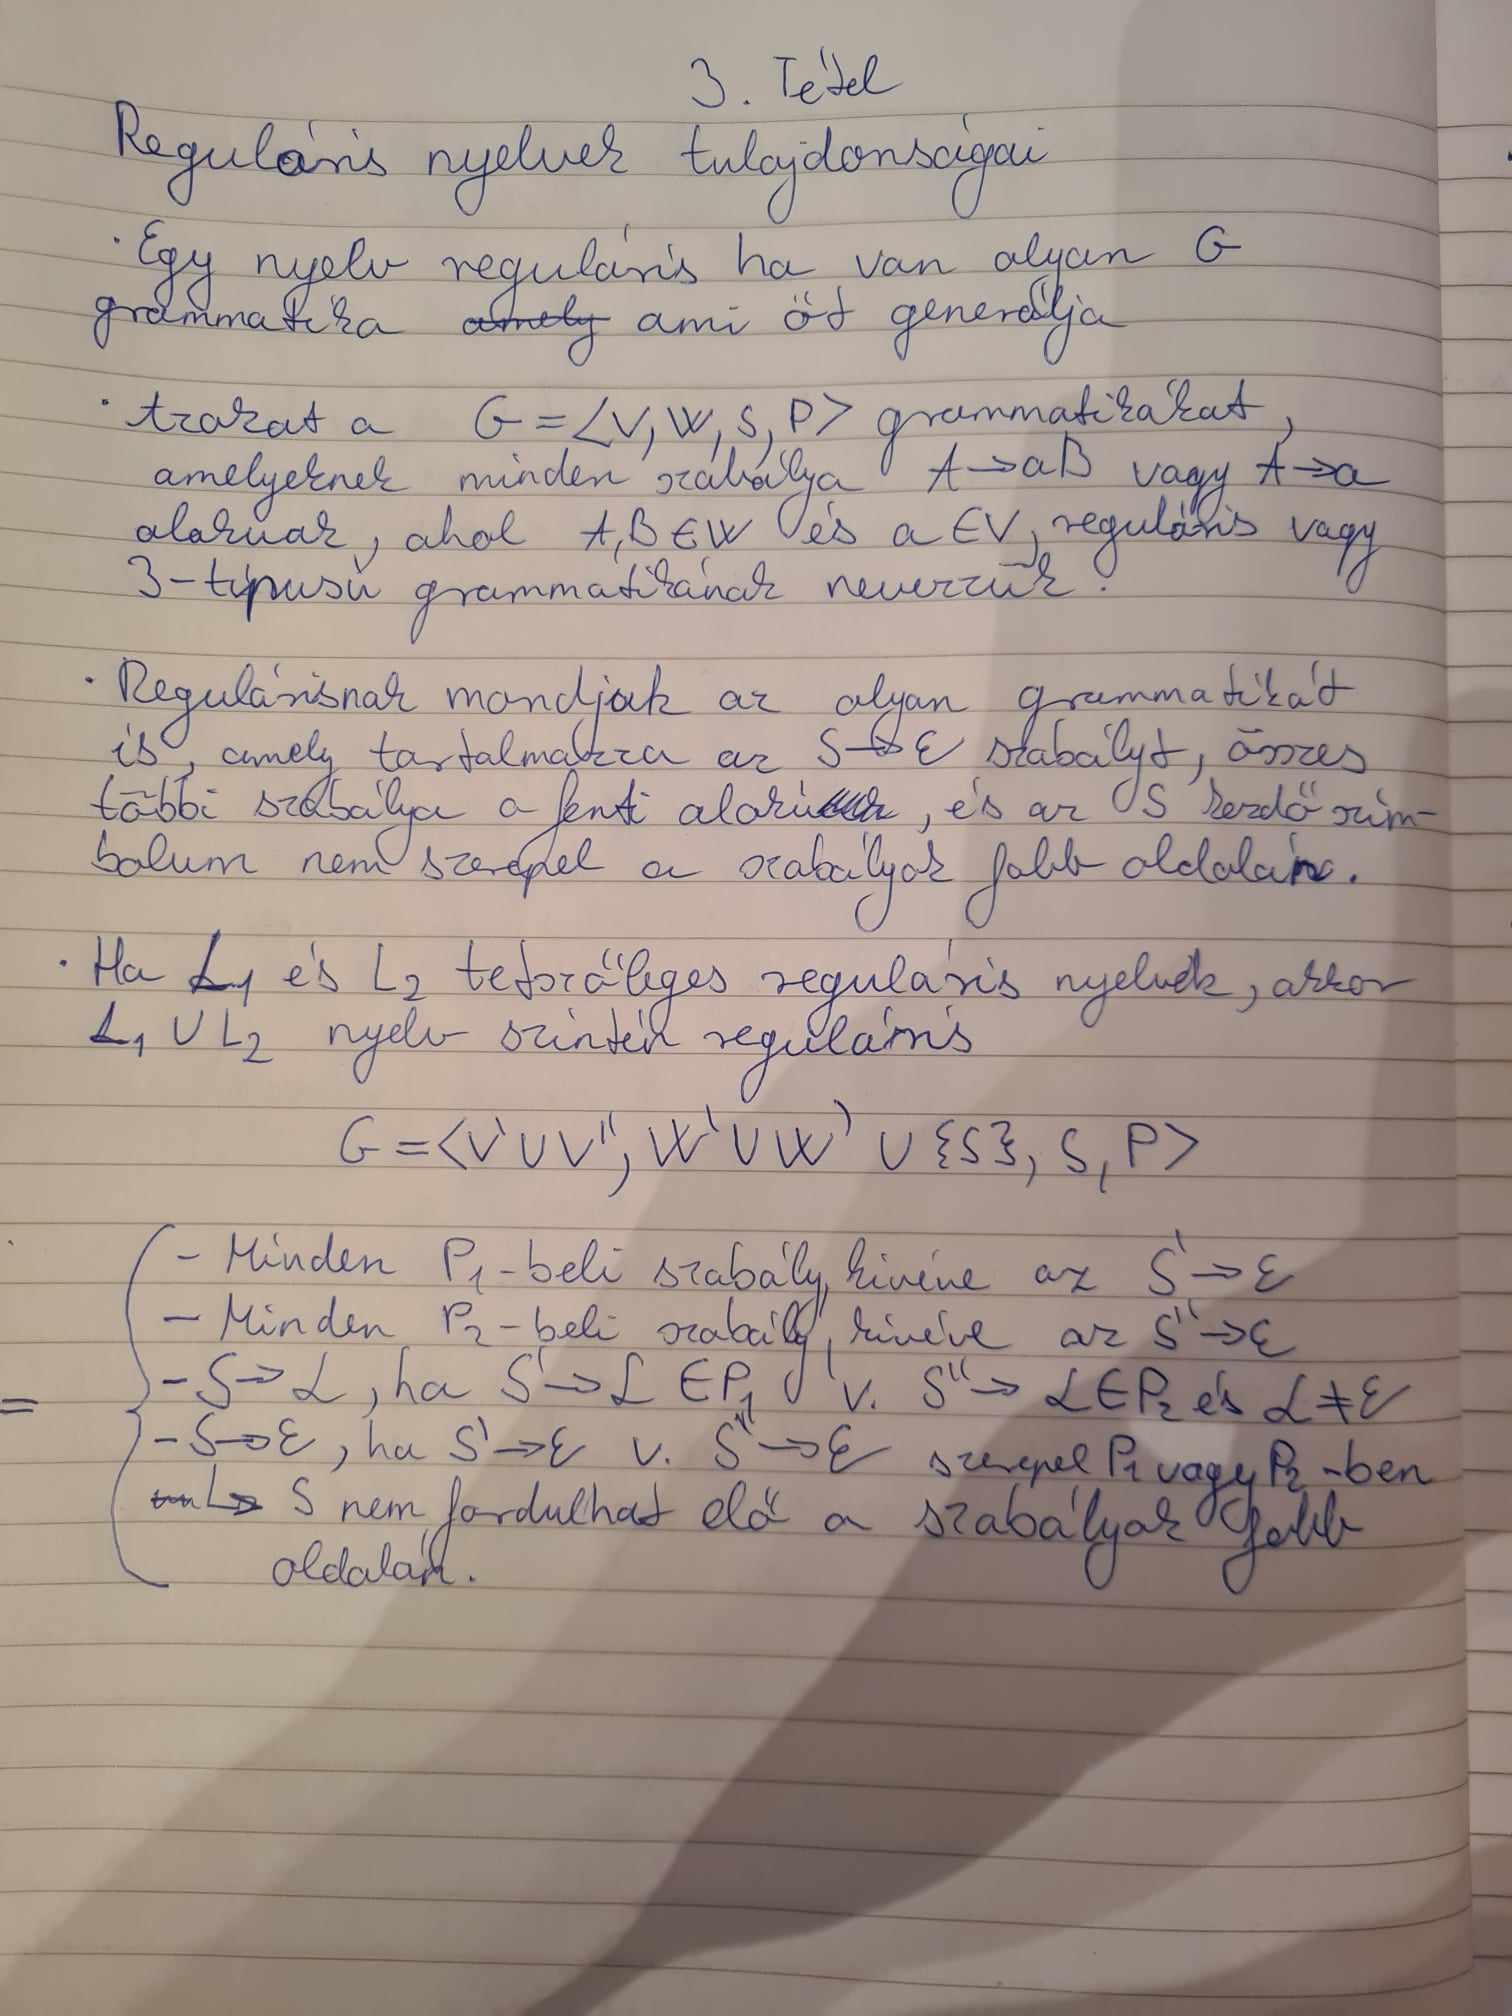 3. Tétel
Reguláris nyelvek tulajdonságai
· Egy nyelv reguláris ha van olyan G
grammatika amely ami őt generálja
· Azokat a G = <V, W, S, P> grammatikákat,
amelyeknek minden szabálya A → aB vagy A → a
alakúak, ahol A, B ∈ W és a ∈ V, reguláris vagy
3-típusú grammatikának nevezzük.
· Regulárisnak mondjuk az olyan grammatikát
is, amely tartalmazza az S → ε szabályt, összes
többi szabálya a fenti alakú, és az S kezdő szim-
bolum nem szerepel a szabályok jobb oldalán.
· Ha L1 és L2 tetszőleges reguláris nyelvek, akkor
L1 ∪ L2 nyelv szintén reguláris
G = <V' ∪ V'', W' ∪ W' ∪ {S}, S, P>
- Minden P1-beli szabály, kivéve az S' → ε
- Minden P2-beli szabály, kivéve az S'' → ε
= - S → L, ha S' → L ∈ P1 v. S'' → L ∈ P2 és L ≠ ε
- S → ε, ha S' → ε v. S'' → ε szerepel P1 vagy P2-ben
↳ S nem fordulhat elő a szabályok jobb
oldalán.